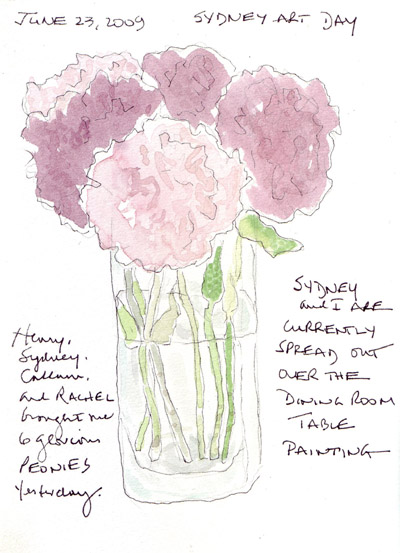 JUNE 23, 2009
SYDNEY ART DAY
Henry,
Sydney,
Callum,
and RACHEL
brought me
6 glorious
PEONIES
Yesterday.
SYDNEY
and I ARE
CURRENTLY
SPREAD OUT
OVER THE
DINING ROOM
TABLE
PAINTING